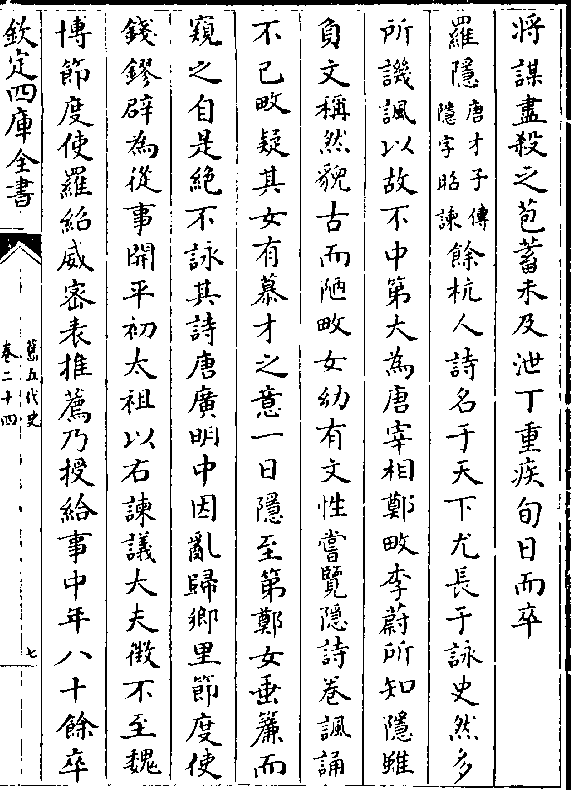 將謀盡殺之苞蓄未及泄丁重疾旬日而卒
羅隱唐才子傳隱字昭諫餘杭人詩名于天下尤長于詠史然多
所譏諷以故不中第大為唐宰相鄭畋李蔚所知隱雖
負文稱然貌古而陋畋女幼有文性嘗覽隱詩卷諷誦
不已畋疑其女有慕才之意一日隱至第鄭女垂簾而
窺之自是絶不詠其詩唐廣明中因亂歸鄉里節度使
錢鏐辟為從事開平初太祖以右諫議大夫徵不至魏
博節度使羅紹威密表推薦乃授給事中年八十餘卒
欽定四庫全書
舊五代史
卷二十四
七